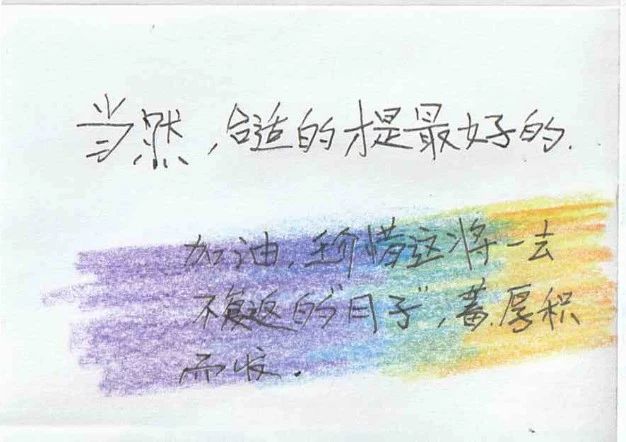 当然,合适的才是最好的.
加油,珍惜这将一去
不复返的“日子”,蓄厚积
而发.